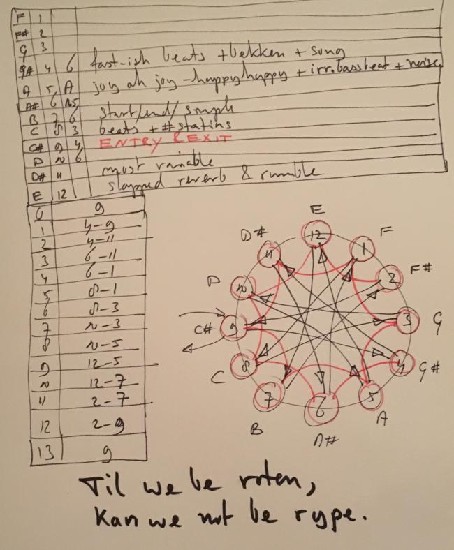 F 1
F# 2
G 3
G# 4 6 fast-ish beats + bekken + song
A 5 A joy oh joy - happy happy + irrebassbeat + noise
A# 6
B 7 6 start/end/simple
C 8 3 beats + # statins
C# 9 4 ENTRY & EXIT
D 10 6 most variable
D# 11
E 12 slapped reverb & rumble
0 9
1 4-9
2 4-11
3 6-11
4 6-1
5 8-1
6 8-3
7 10-3
8 10-5
9 12-5
10 12-7
11 2-7
12 2-9
13 9
E
D# 12 F
11 1
D 10 2 F#
C# 9 3 G
C 8 4 G#
7 6 5 A
B A#
Til we be roten,
Kan we not be rype.